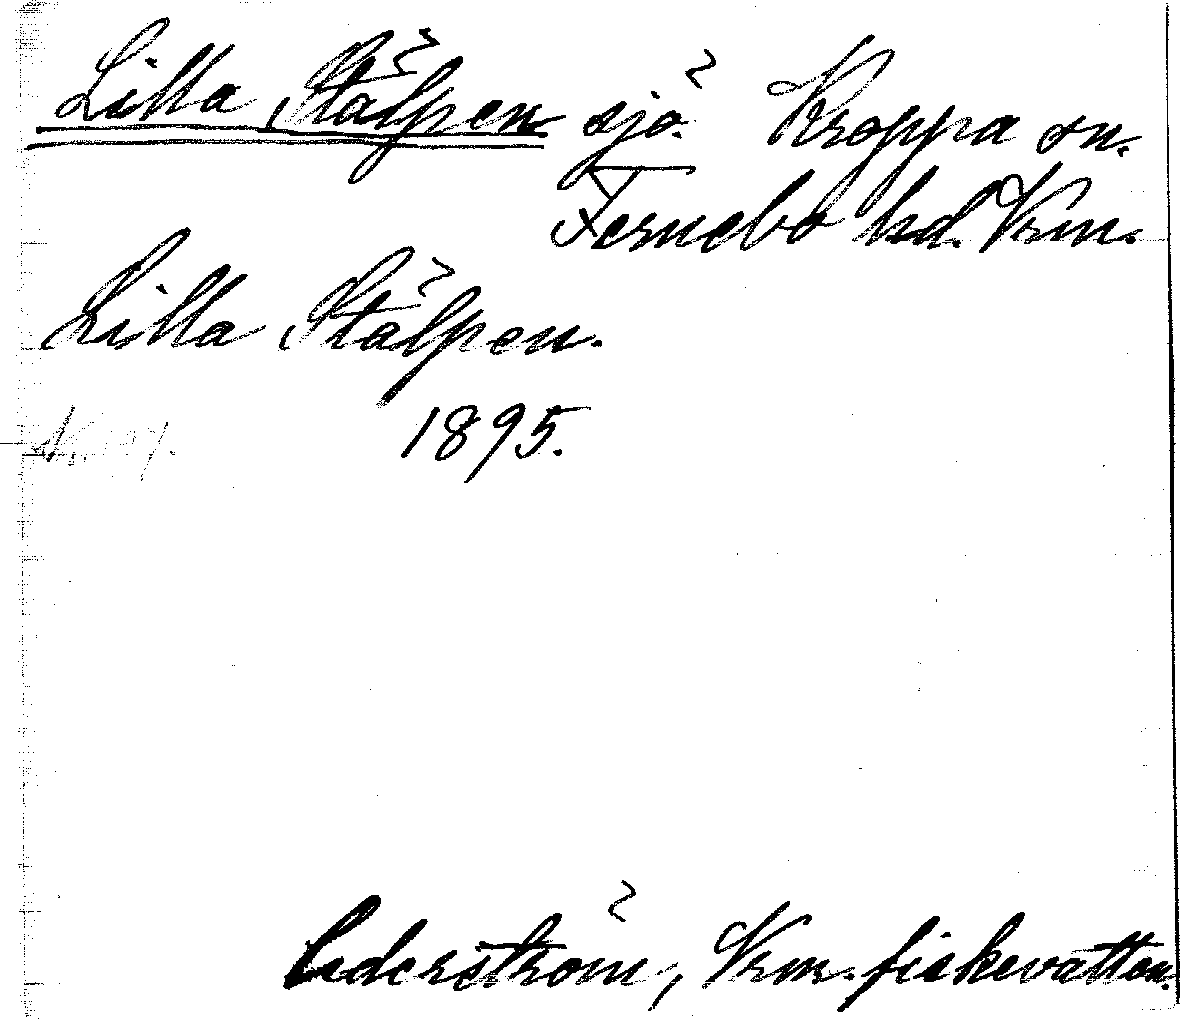 Lilla Stälpen sjö. Kroppa sn.
Fernebo hd. Vrm.
Lilla Stälpen.
1895.
Cederström, Vrm. fiskevatten.